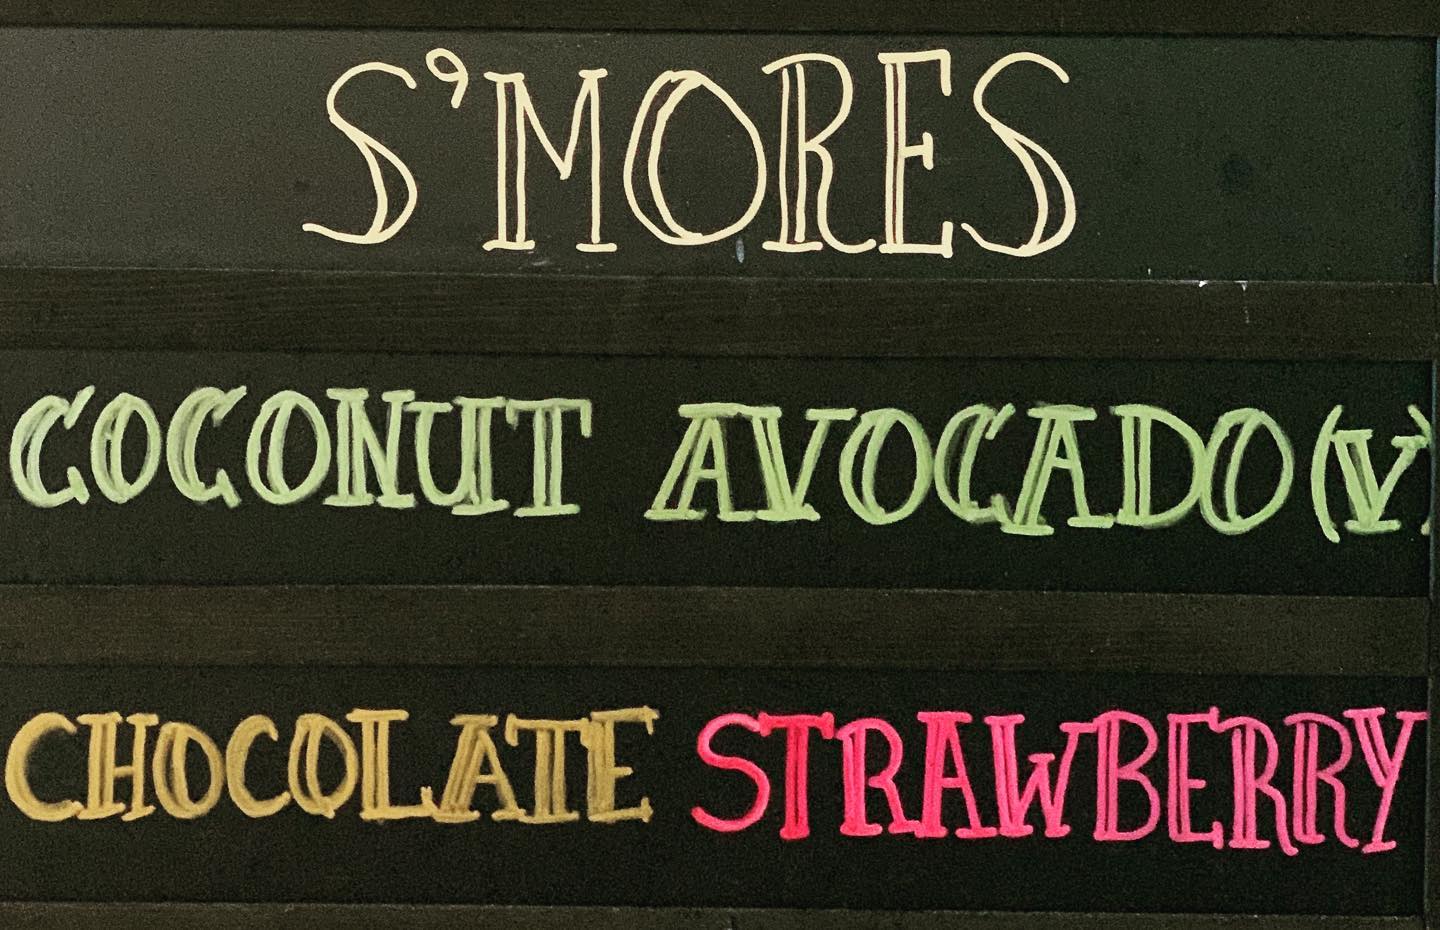 S'MORES
COCONUT AVOCADO (V)
CHOCOLATE STRAWBERRY